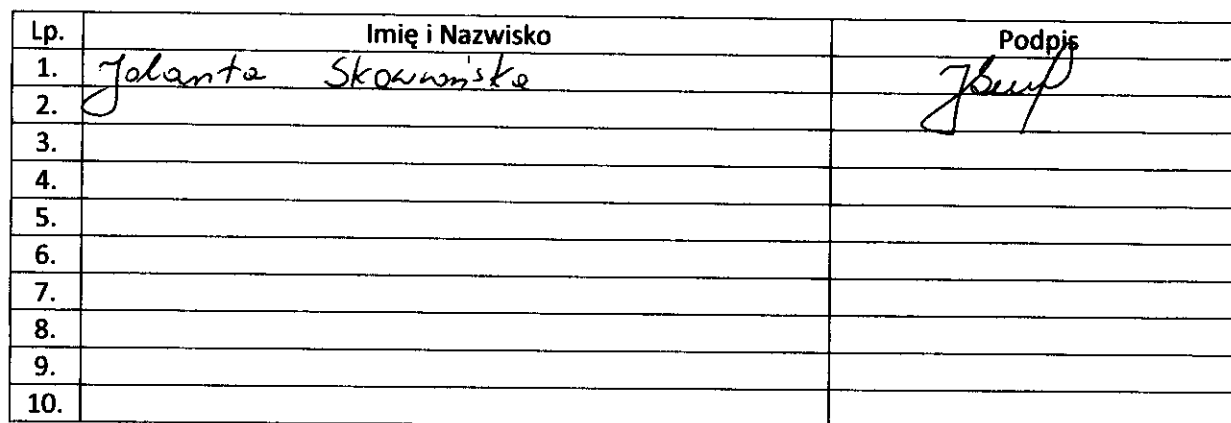 Lp. Imię i Nazwisko Podpis
1. Jolanta Skowrońska
2.
3.
4.
5.
6.
7.
8.
9.
10.